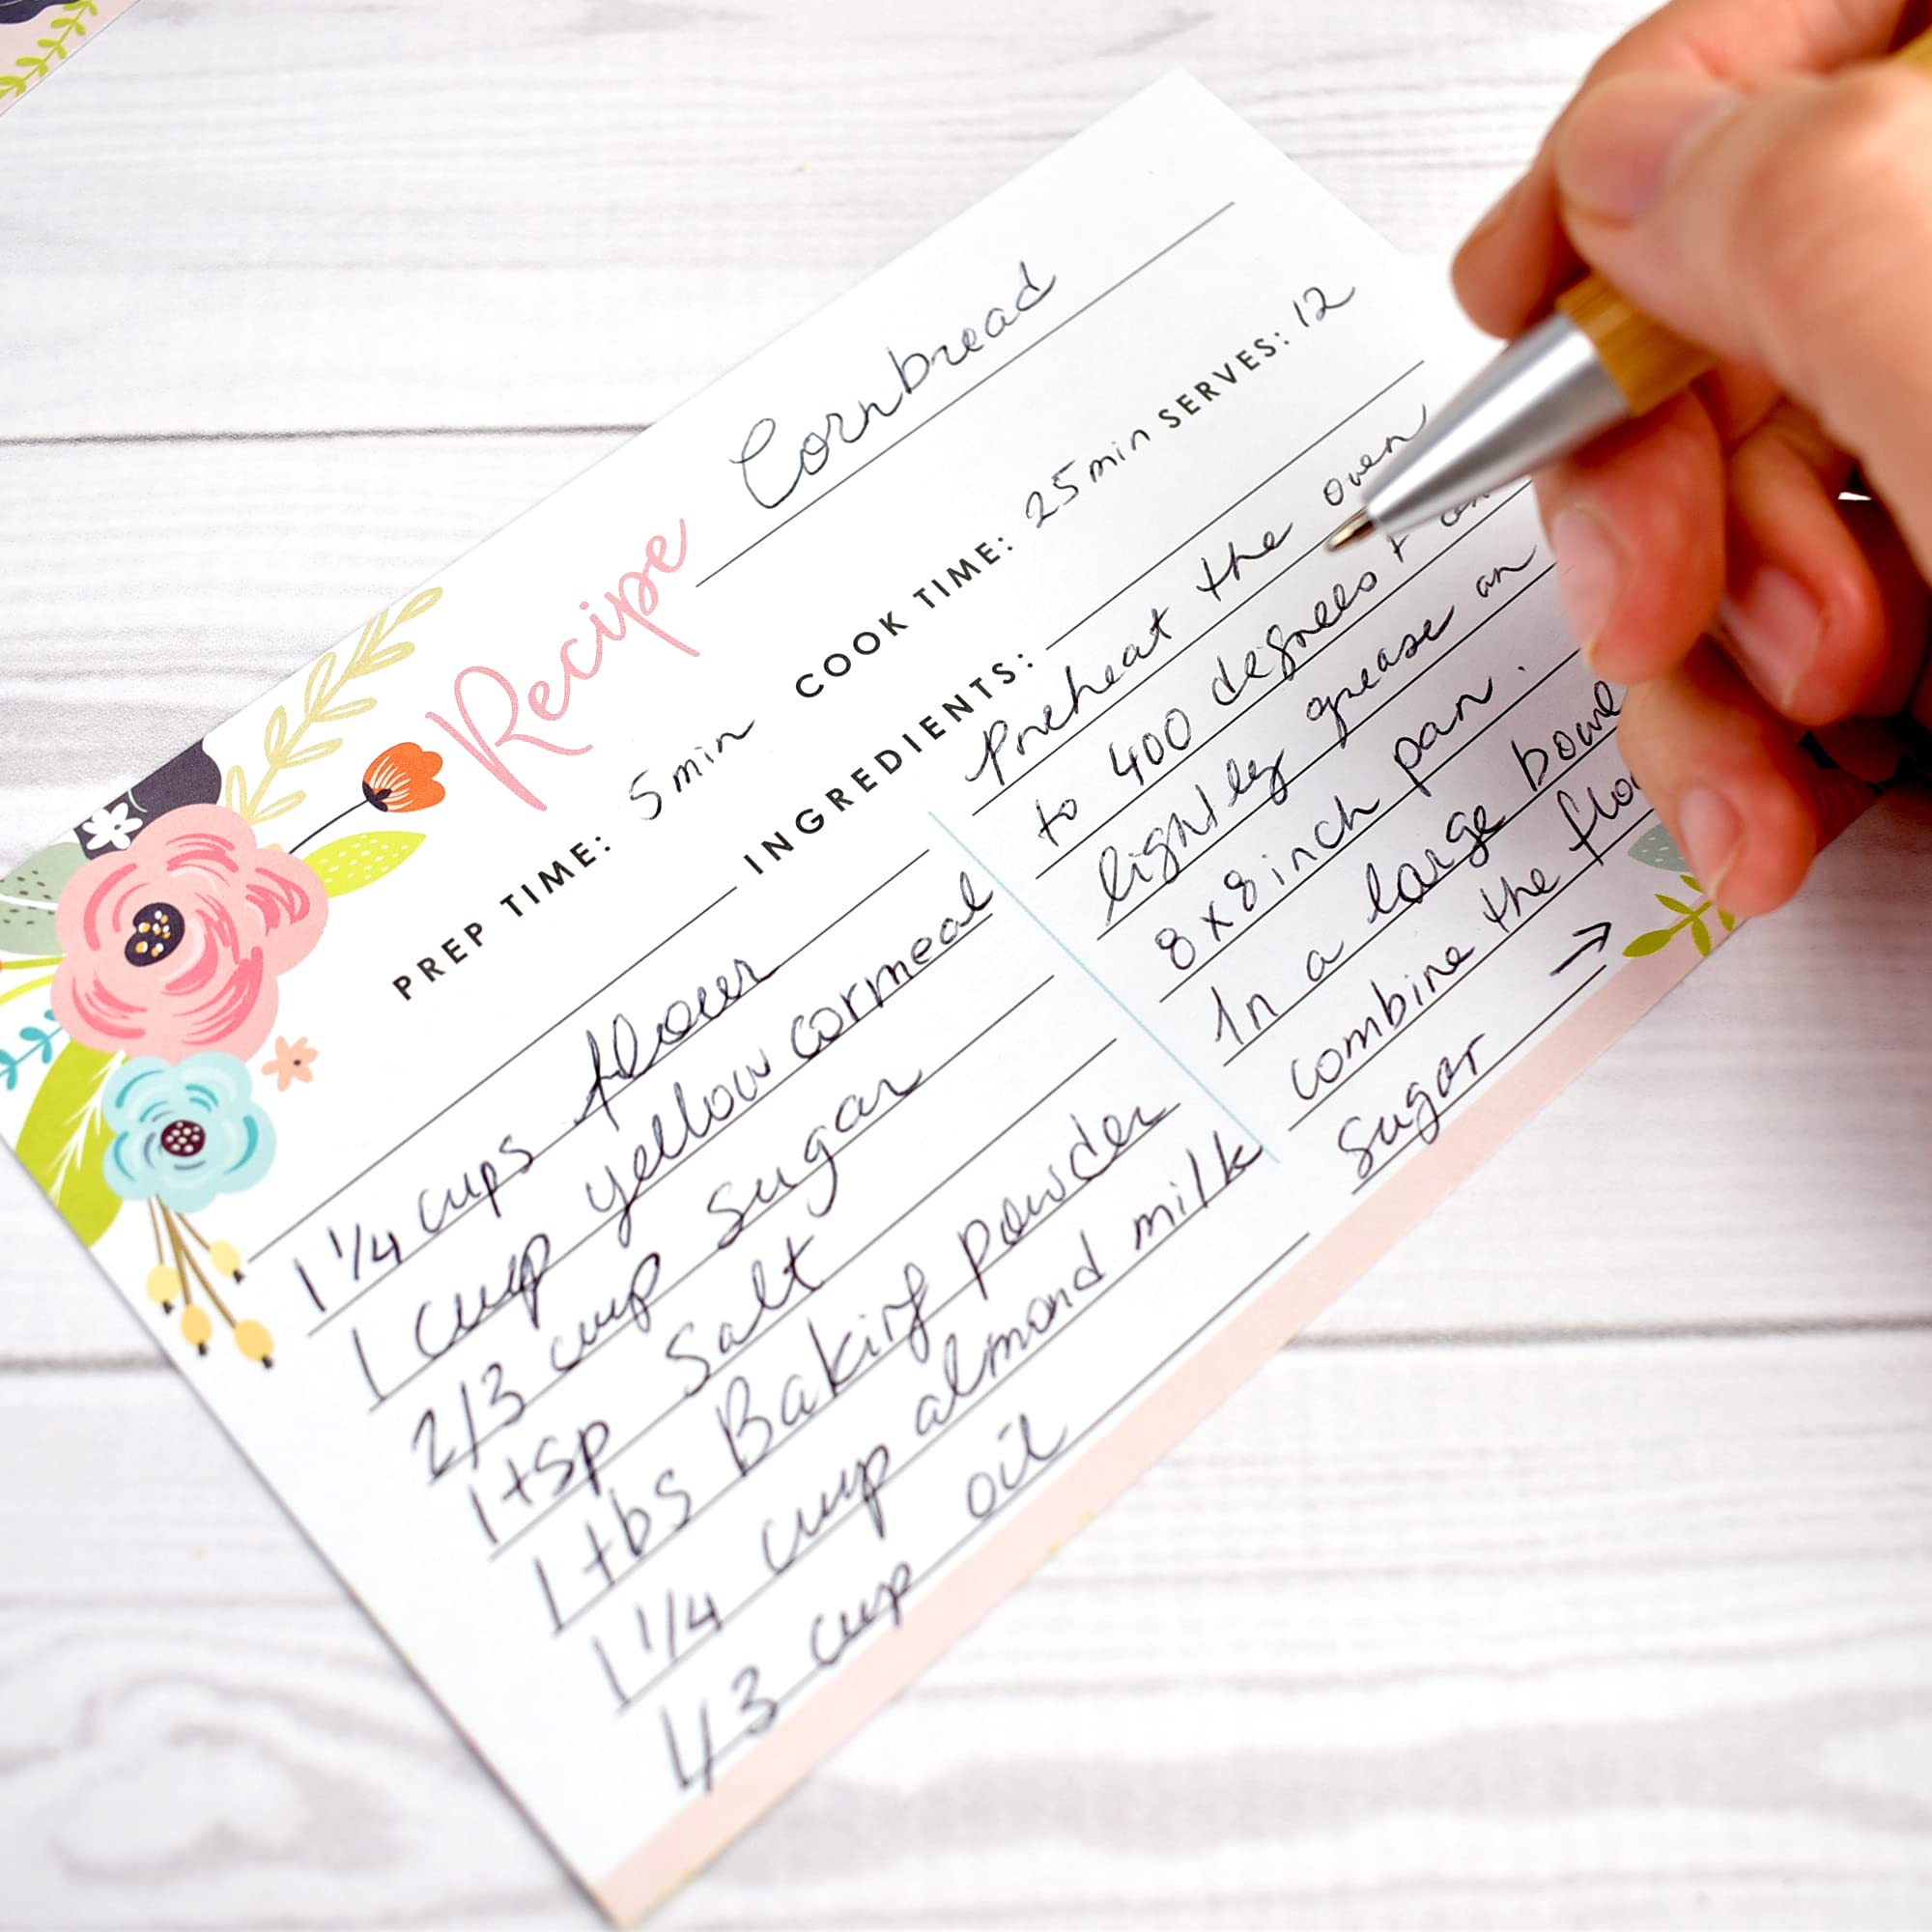 Recipe Cornbread
PREP TIME: 5 min COOK TIME: 25 min SERVES: 12
INGREDIENTS:
1 1/4 cups flour
1 cup yellow cornmeal
2/3 cup sugar
1 tsp Salt
1 tbs Baking powder
1 1/4 cup almond milk
1/3 cup oil
Preheat the oven
to 400 degrees +
lightly grease an
8x8 inch pan.
In a large bowl
combine the
sugar →